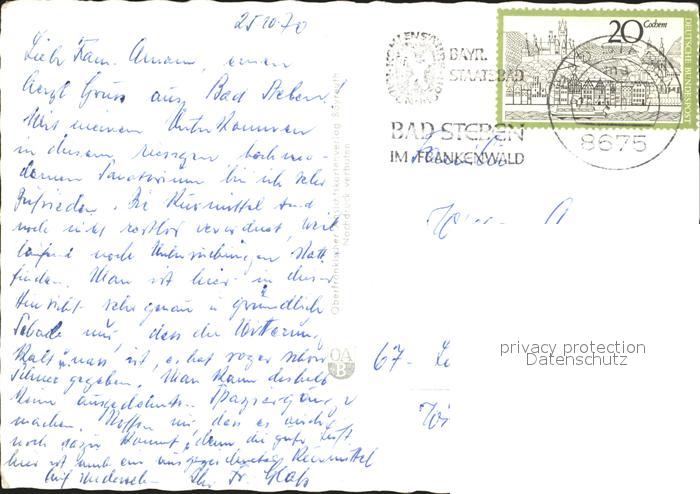 25.10.70
Liebe Fam. Amann, einen
herzl Gruss aus Bad Steben!
Mit meinem Unterkommen
in diesem riesigen hochmo-
dernen Sanatorium bin ich sehr
zufrieden. Die Kurmittel sind
noch nicht restlos verordnet, weil
laufend noch Untersuchungen statt
finden. Man ist hier in dieser
Hinsicht sehr genau u gründlich
Schade nur, dass die Witterung
kalt u nass ist, es hat sogar schon
Schnee gegeben. Man kann deshalb
keine ausgedehnten Spaziergänge
machen. Hoffen wir, dass es nicht
noch dazu kommt, denn die gute Luft
hier ist auch ein ausgezeichnetes Kurmittel
Auf Wiedersehn Ihr Fr. Glas
Oberfränkischer Ansichtskartenverlag
Nachdruck verboten
OA
B
BAYR.
STAATSBAD
BAD STEBEN
IM FRANKENWALD
20 Cochem
DEUTSCHE BUNDESPOST
8675
67-
privacy protection
Datenschutz